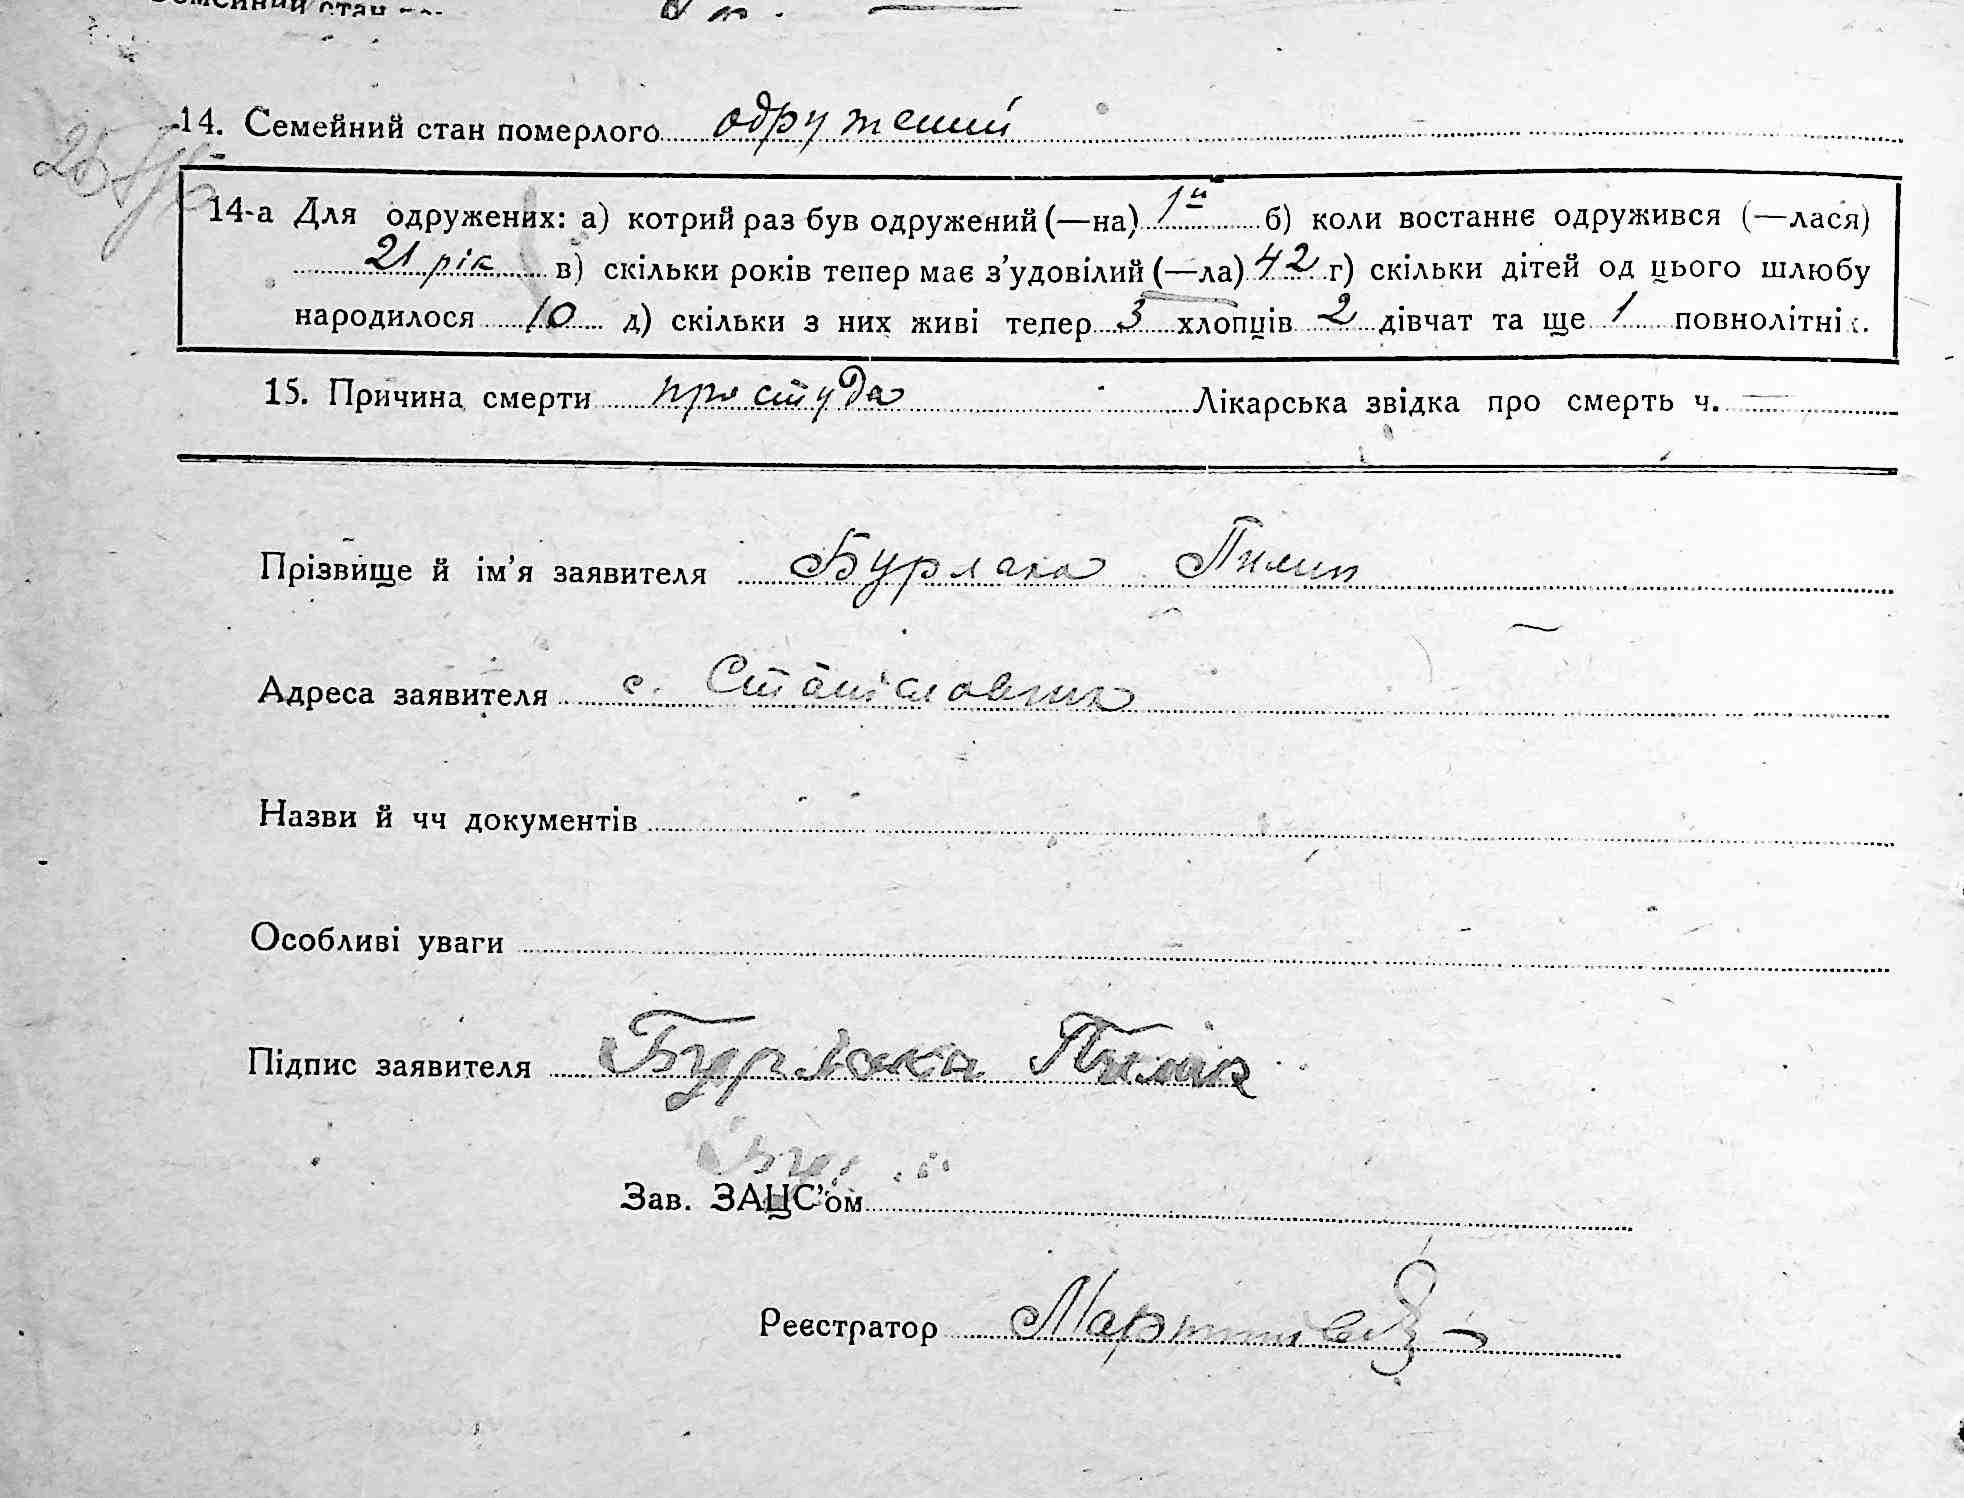 14. Семейний стан померлого одружений
14-а Для одружених: а) котрий раз був одружений (—на) 1й б) коли востаннє одружився (—лася)
21 рік в) скільки років тепер має з’удовілий (—ла) 42 г) скільки дітей од цього шлюбу
народилося 10 д) скільки з них живі тепер 3 хлопців 2 дівчат та ще 1 повнолітні
15. Причина смерти простуда Лікарська звідка про смерть ч. —
Прізвище й ім’я заявителя Бурлака Пилип
Адреса заявителя с. Станіславчик
Назви й чч документів
Особливі уваги
Підпис заявителя Бурлака Пилип
Зав. ЗАЦС’ом
Реєстратор